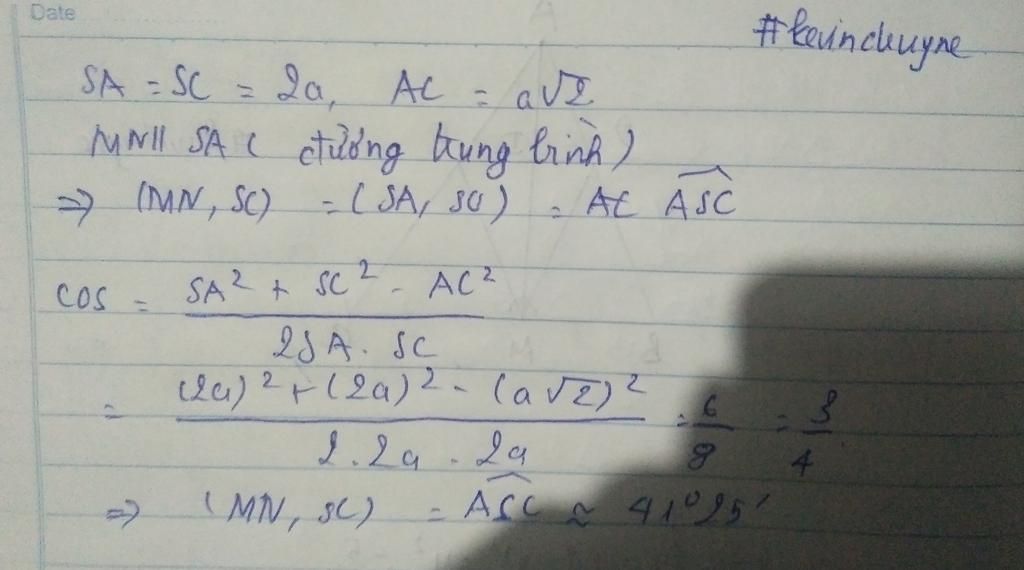 Date
#kevinchuyne
SA = SC = 2a, AC = a√2
MN || SA ( đường trung bình )
=> (MN, SC) = (SA, SC) = AC ASC
cos = SA² + SC² - AC²
2SA . SC
= (2a)² + (2a)² - (a√2)² = 6 = 3
2.2a . 2a 8 4
=> (MN, SC) = ASC ≈ 41°25'